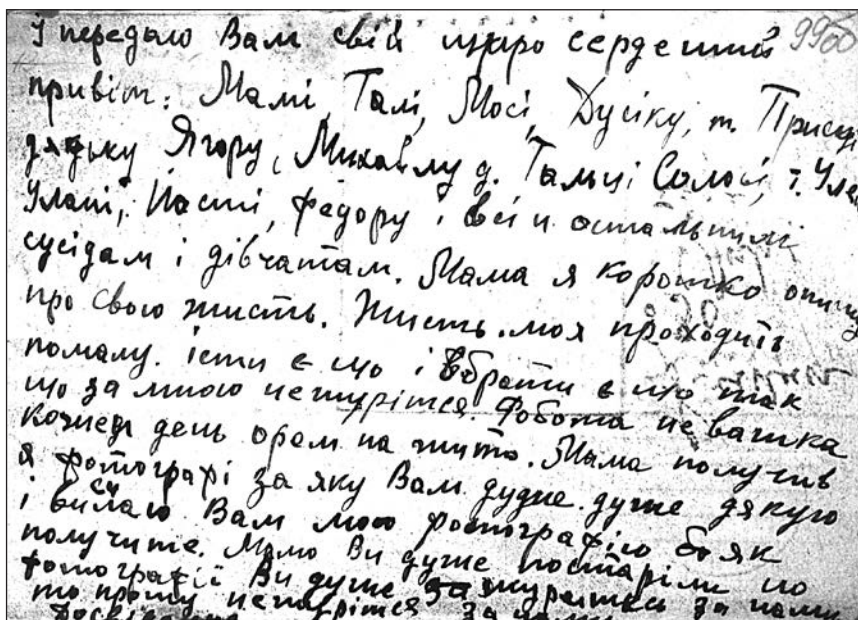 І передаю Вам свій щаро сердешний 9900
привіт: Мамі, Талі, Мосі, Дусіку, т. Присці
дядьку Ягору, Михайлу д. Тамці Солосі, т. Улян
Улані, Насті, Федору і всім остальним
сусідам і дівчатам. Мама я коротко опишу
про свою жисть. Жисть моя проходить
помалу. істи є що і вбрати є що так
що за мною нежурітся. Робота не важка
кожен день орем на жито. Мама получив
я фотографі за яку Вам дудже дуже дякую
і висилаю Вам мою фотографію бо як
получите. Мамо Ви дуже постаріли по
фотографії Ви дуже зажурились за нами
то прошу нежурітся за нами